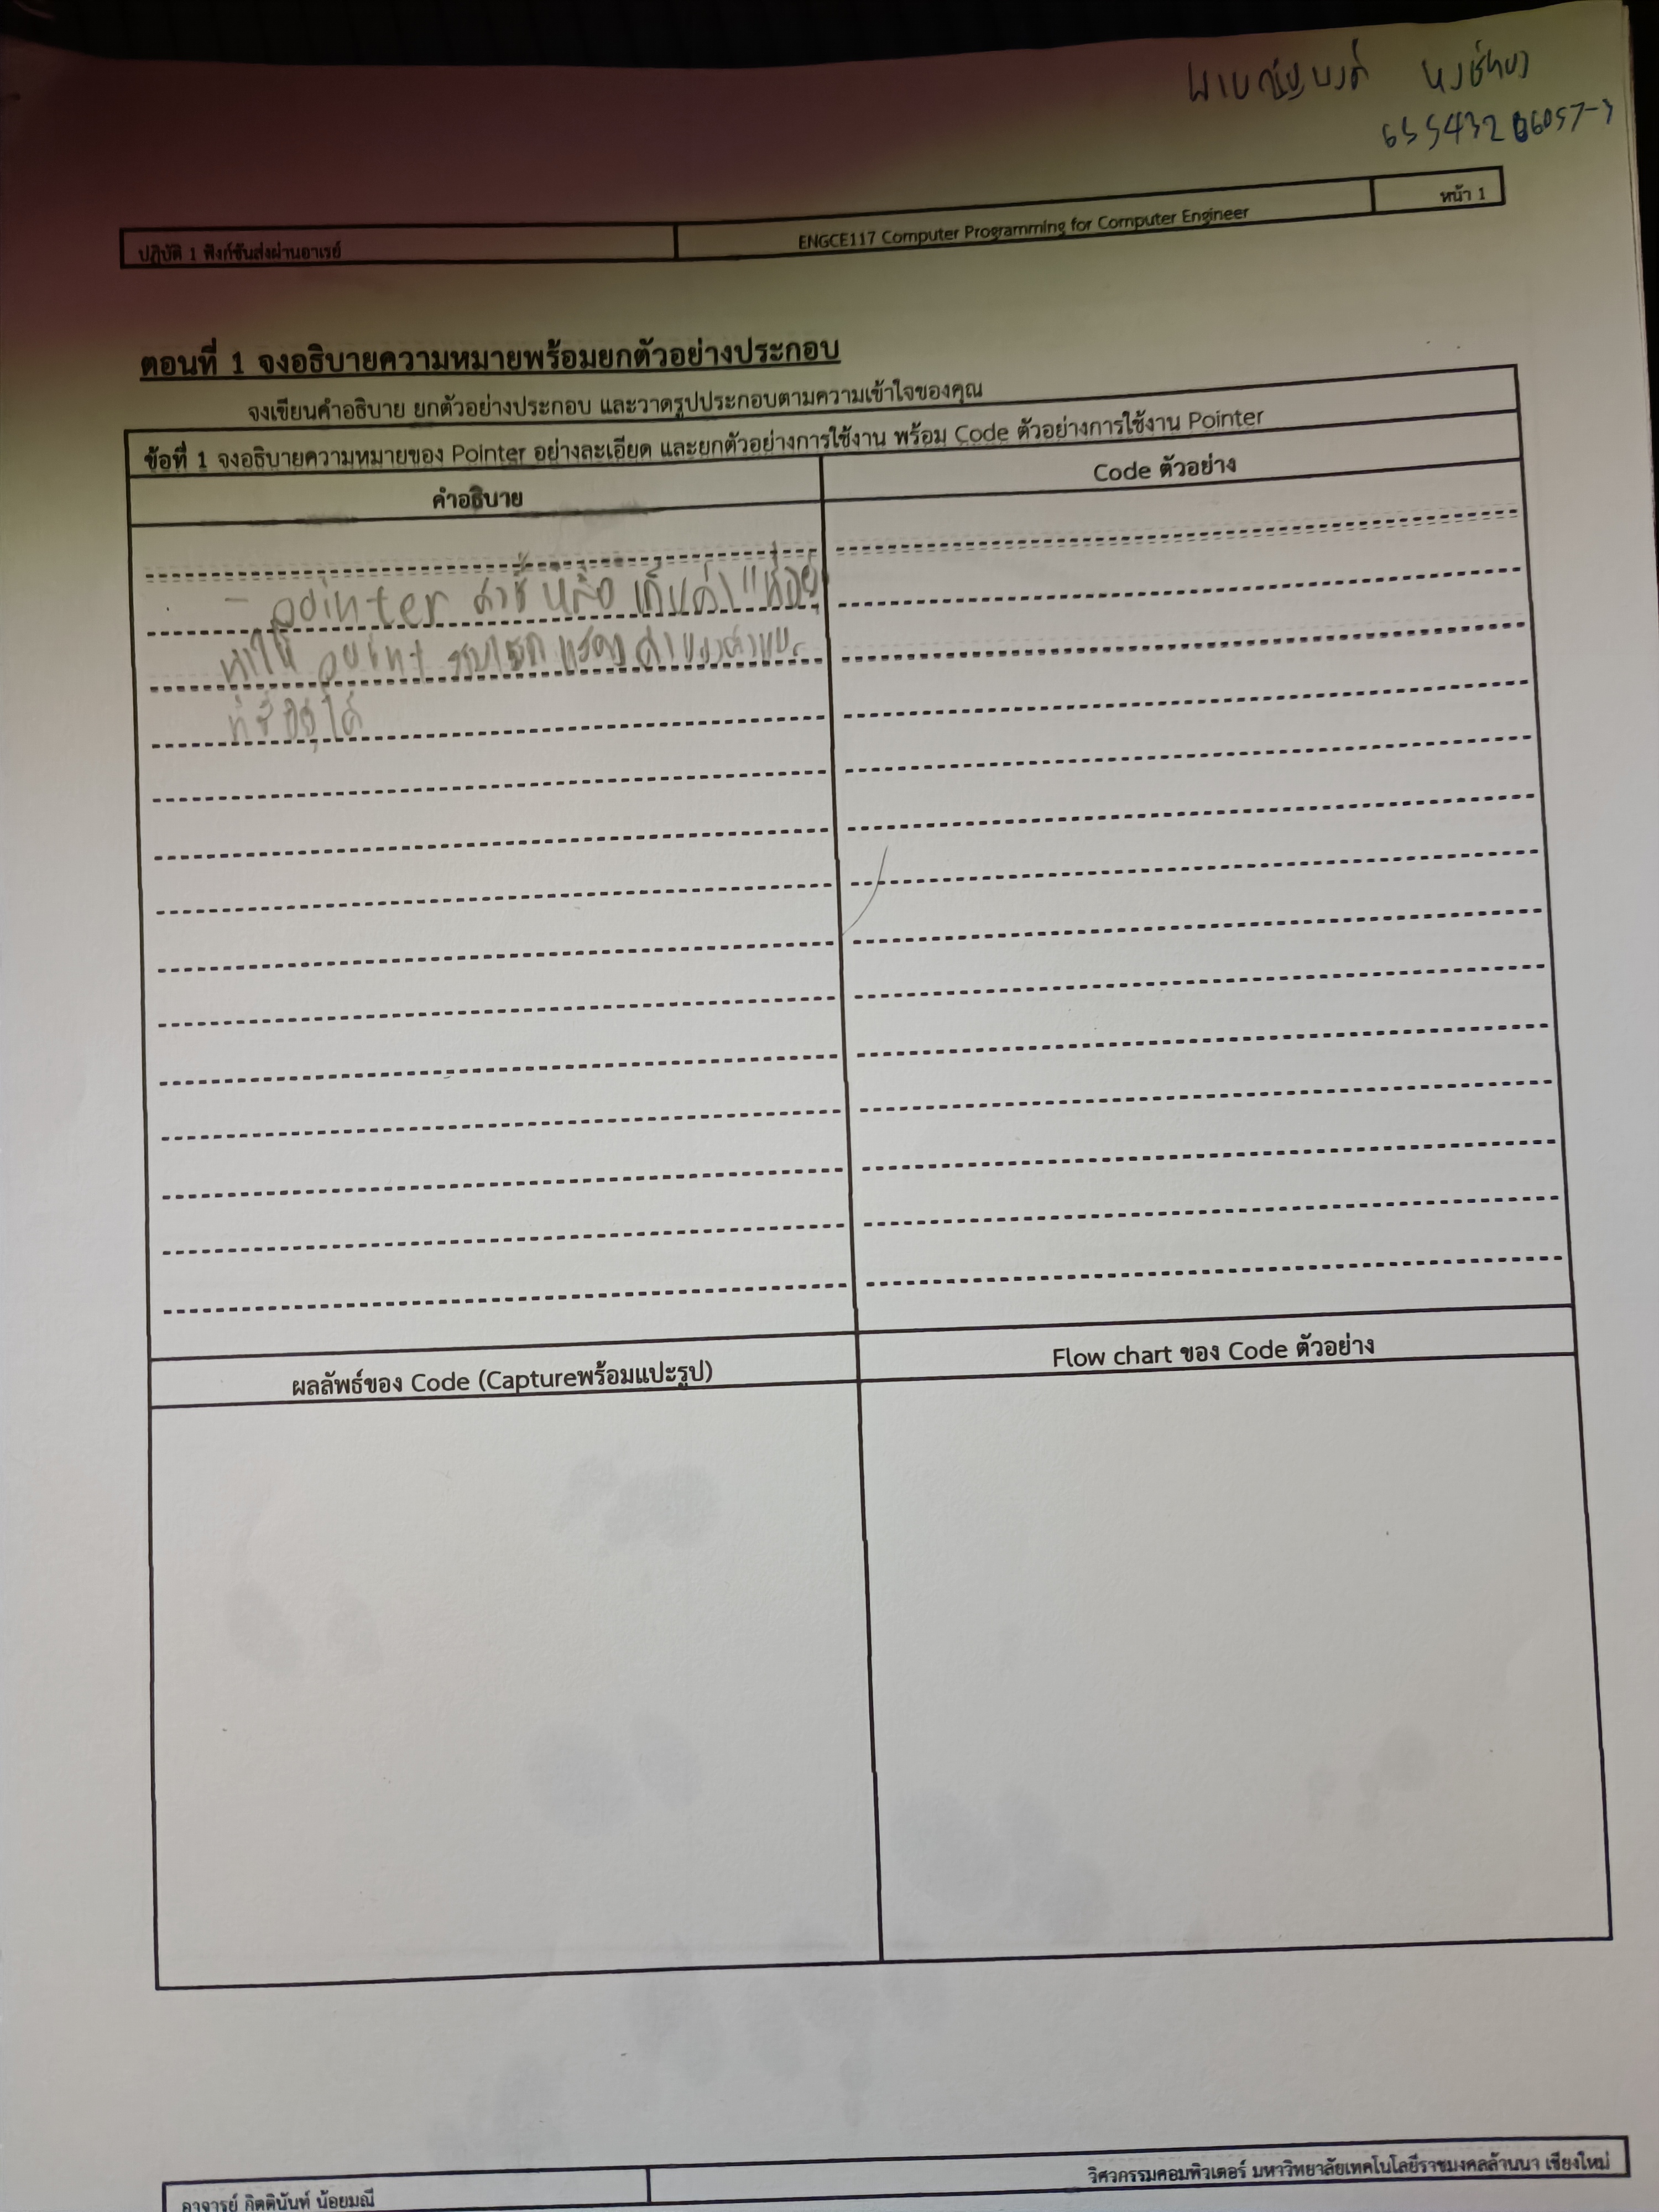 65543206057-3
ปฏิบัติ 1 ฟังก์ชันส่งผ่านอาเรย์
ENGCE117 Computer Programming for Computer Engineer
หน้า 1
ตอนที่ 1 จงอธิบายความหมายพร้อมยกตัวอย่างประกอบ
จงเขียนคำอธิบาย ยกตัวอย่างประกอบ และวาดรูปประกอบตามความเข้าใจของคุณ
ข้อที่ 1 จงอธิบายความหมายของ Pointer อย่างละเอียด และยกตัวอย่างการใช้งาน พร้อม Code ตัวอย่างการใช้งาน Pointer
คำอธิบาย
Code ตัวอย่าง
- pointer ตัวชี้ หรือ เก็บค่า ที่อยู่
ทำให้ point สามารถแสดงค่าของตัวแปร
ที่ชี้อยู่ได้
ผลลัพธ์ของ Code (Captureพร้อมแปะรูป)
Flow chart ของ Code ตัวอย่าง
อาจารย์ กิตตินันท์ น้อยมณี
วิศวกรรมคอมพิวเตอร์ มหาวิทยาลัยเทคโนโลยีราชมงคลล้านนา เชียงใหม่